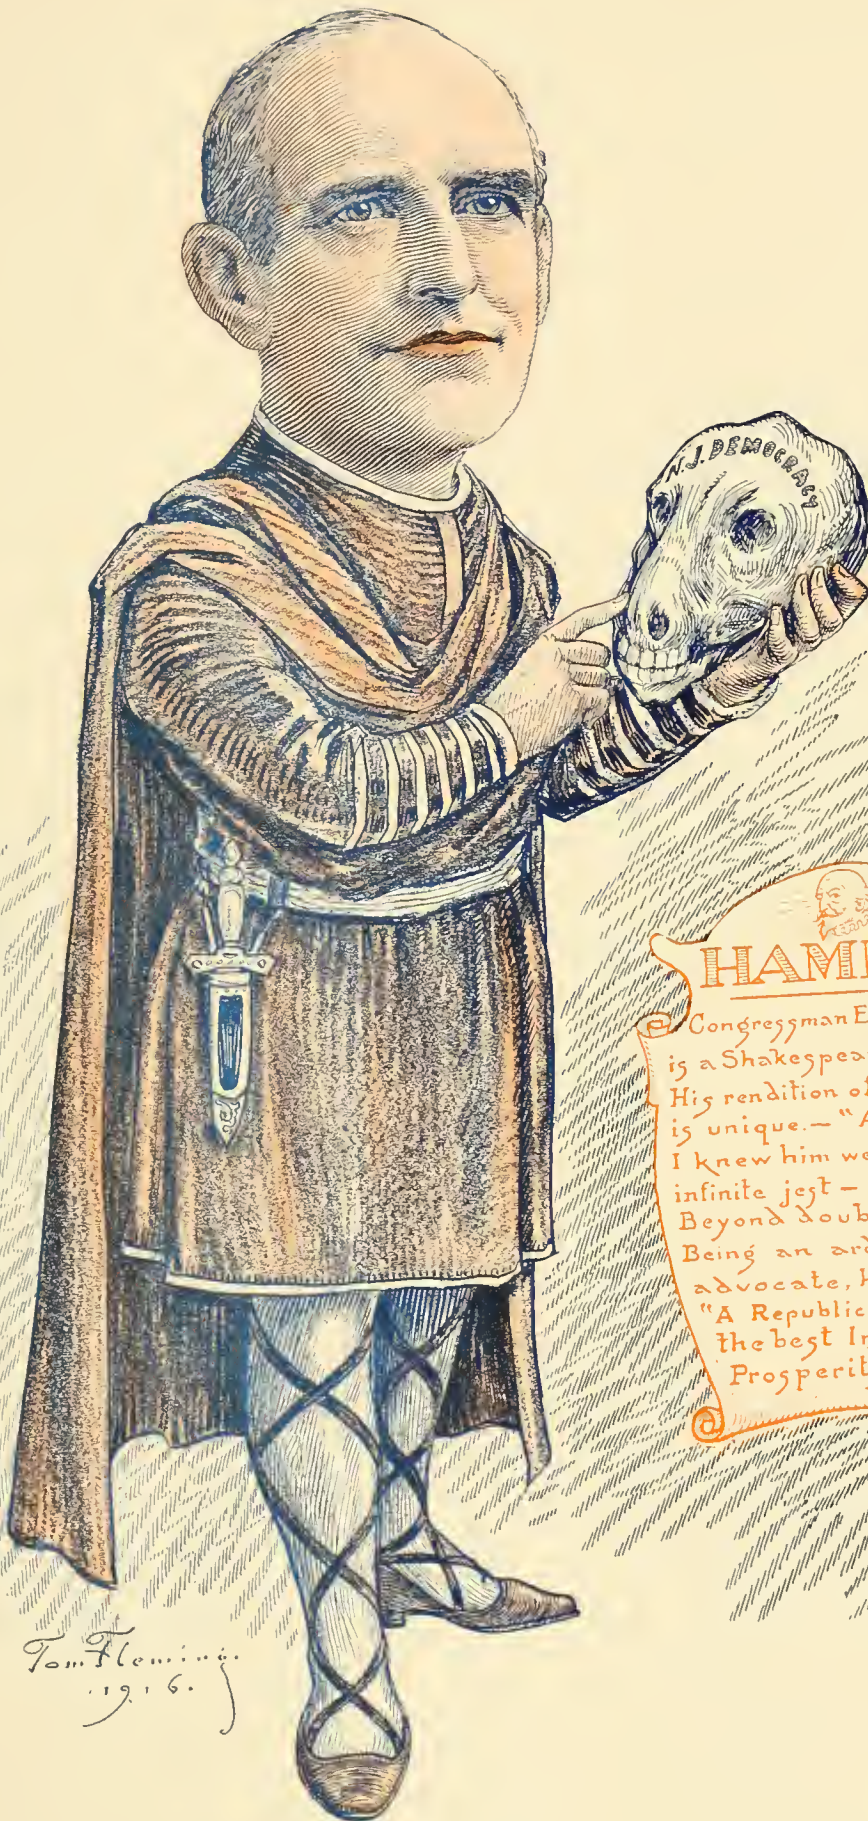 N.J. DEMOCRACY
HAM
Congressman E
is a Shakespea
His rendition o
is unique.— "A
I knew him we
infinite jest —
Beyond doub
Being an ard
advocate, h
"A Republic
the best In
Prosperit
Tom Fleming.
.1916.